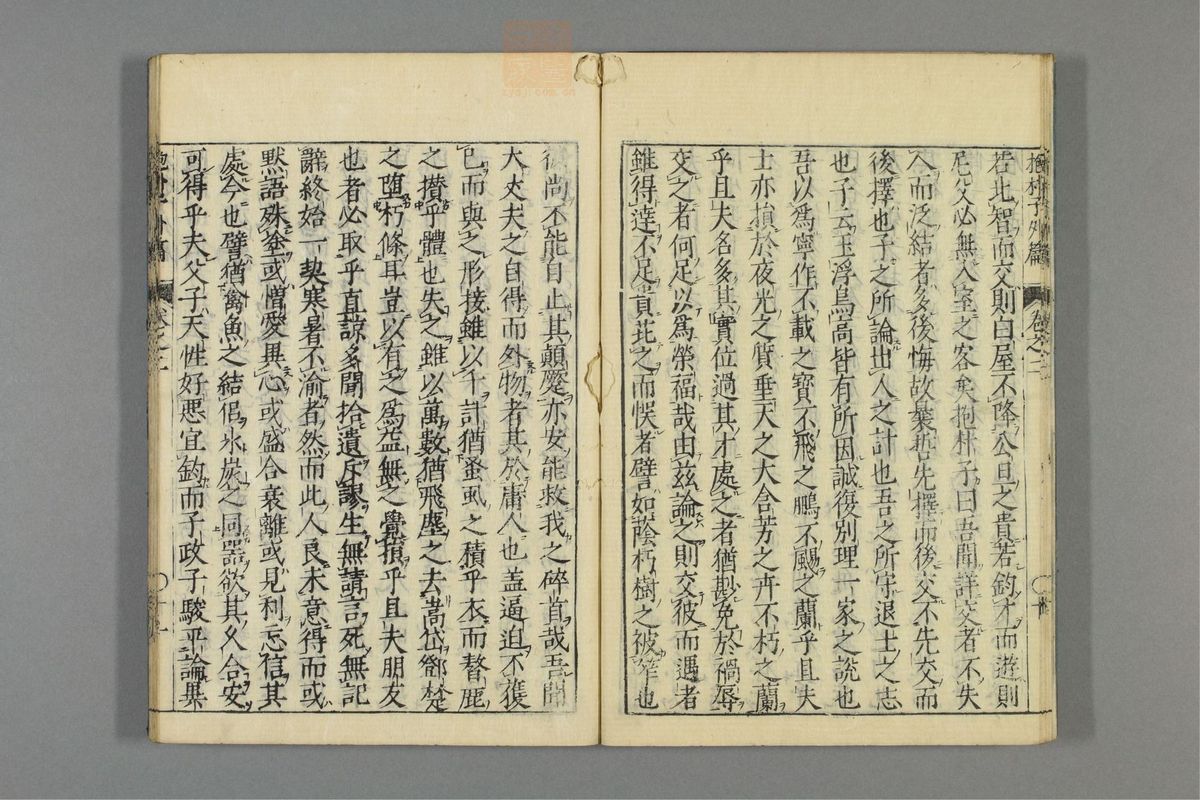 抱朴子外篇 卷之二 十
若比智而交則白屋不降公旦之貴若鈞才而遊則
尼父必無入室之客矣抱朴子曰吾聞詳交者不失
人而泛結者多後悔故曩哲先擇而後交不先交而
後擇也子之所論出人之計也吾之所守退士之志
也子云玉浮鳥高皆有所因誠復別理一家之說也
吾以為寧作不載之寶不飛之鵬不颺之蘭乎且夫
士亦損於夜光之質垂天之大含芳之卉不朽之蘭
乎且夫名多其實位過其才處之者猶尠免於禍辱
交之者何足以為榮福哉由茲論之則交彼而遇者
雖得達不足貴芘之而悞者譬如蔭朽樹之被笮也
彼尚不能自止其顛蹷亦安能救我之碎首哉吾聞
大丈夫之自得而外物者其於庸人也蓋逼迫不獲
已而與之形接雖以千計猶蚤虱之積乎衣而贅疣
之攅乎體也失之雖以萬數猶飛塵之去嵩岱鄧楚
之墮朽條耳豈以有之為益無之覺損乎且夫朋友
也者必取乎直諒多聞拾遺斥謬生無請言死無記
辭終始一契寒暑不渝者然而此人良未意得而或
默語殊塗或憎愛異心或盛合衰離或見利忘信其
處今也譬猶禽魚之結侶氷炭之同器欲其久合安
可得乎夫父子天性好惡宜鈞而子政子駿平論異
卷之二 十一